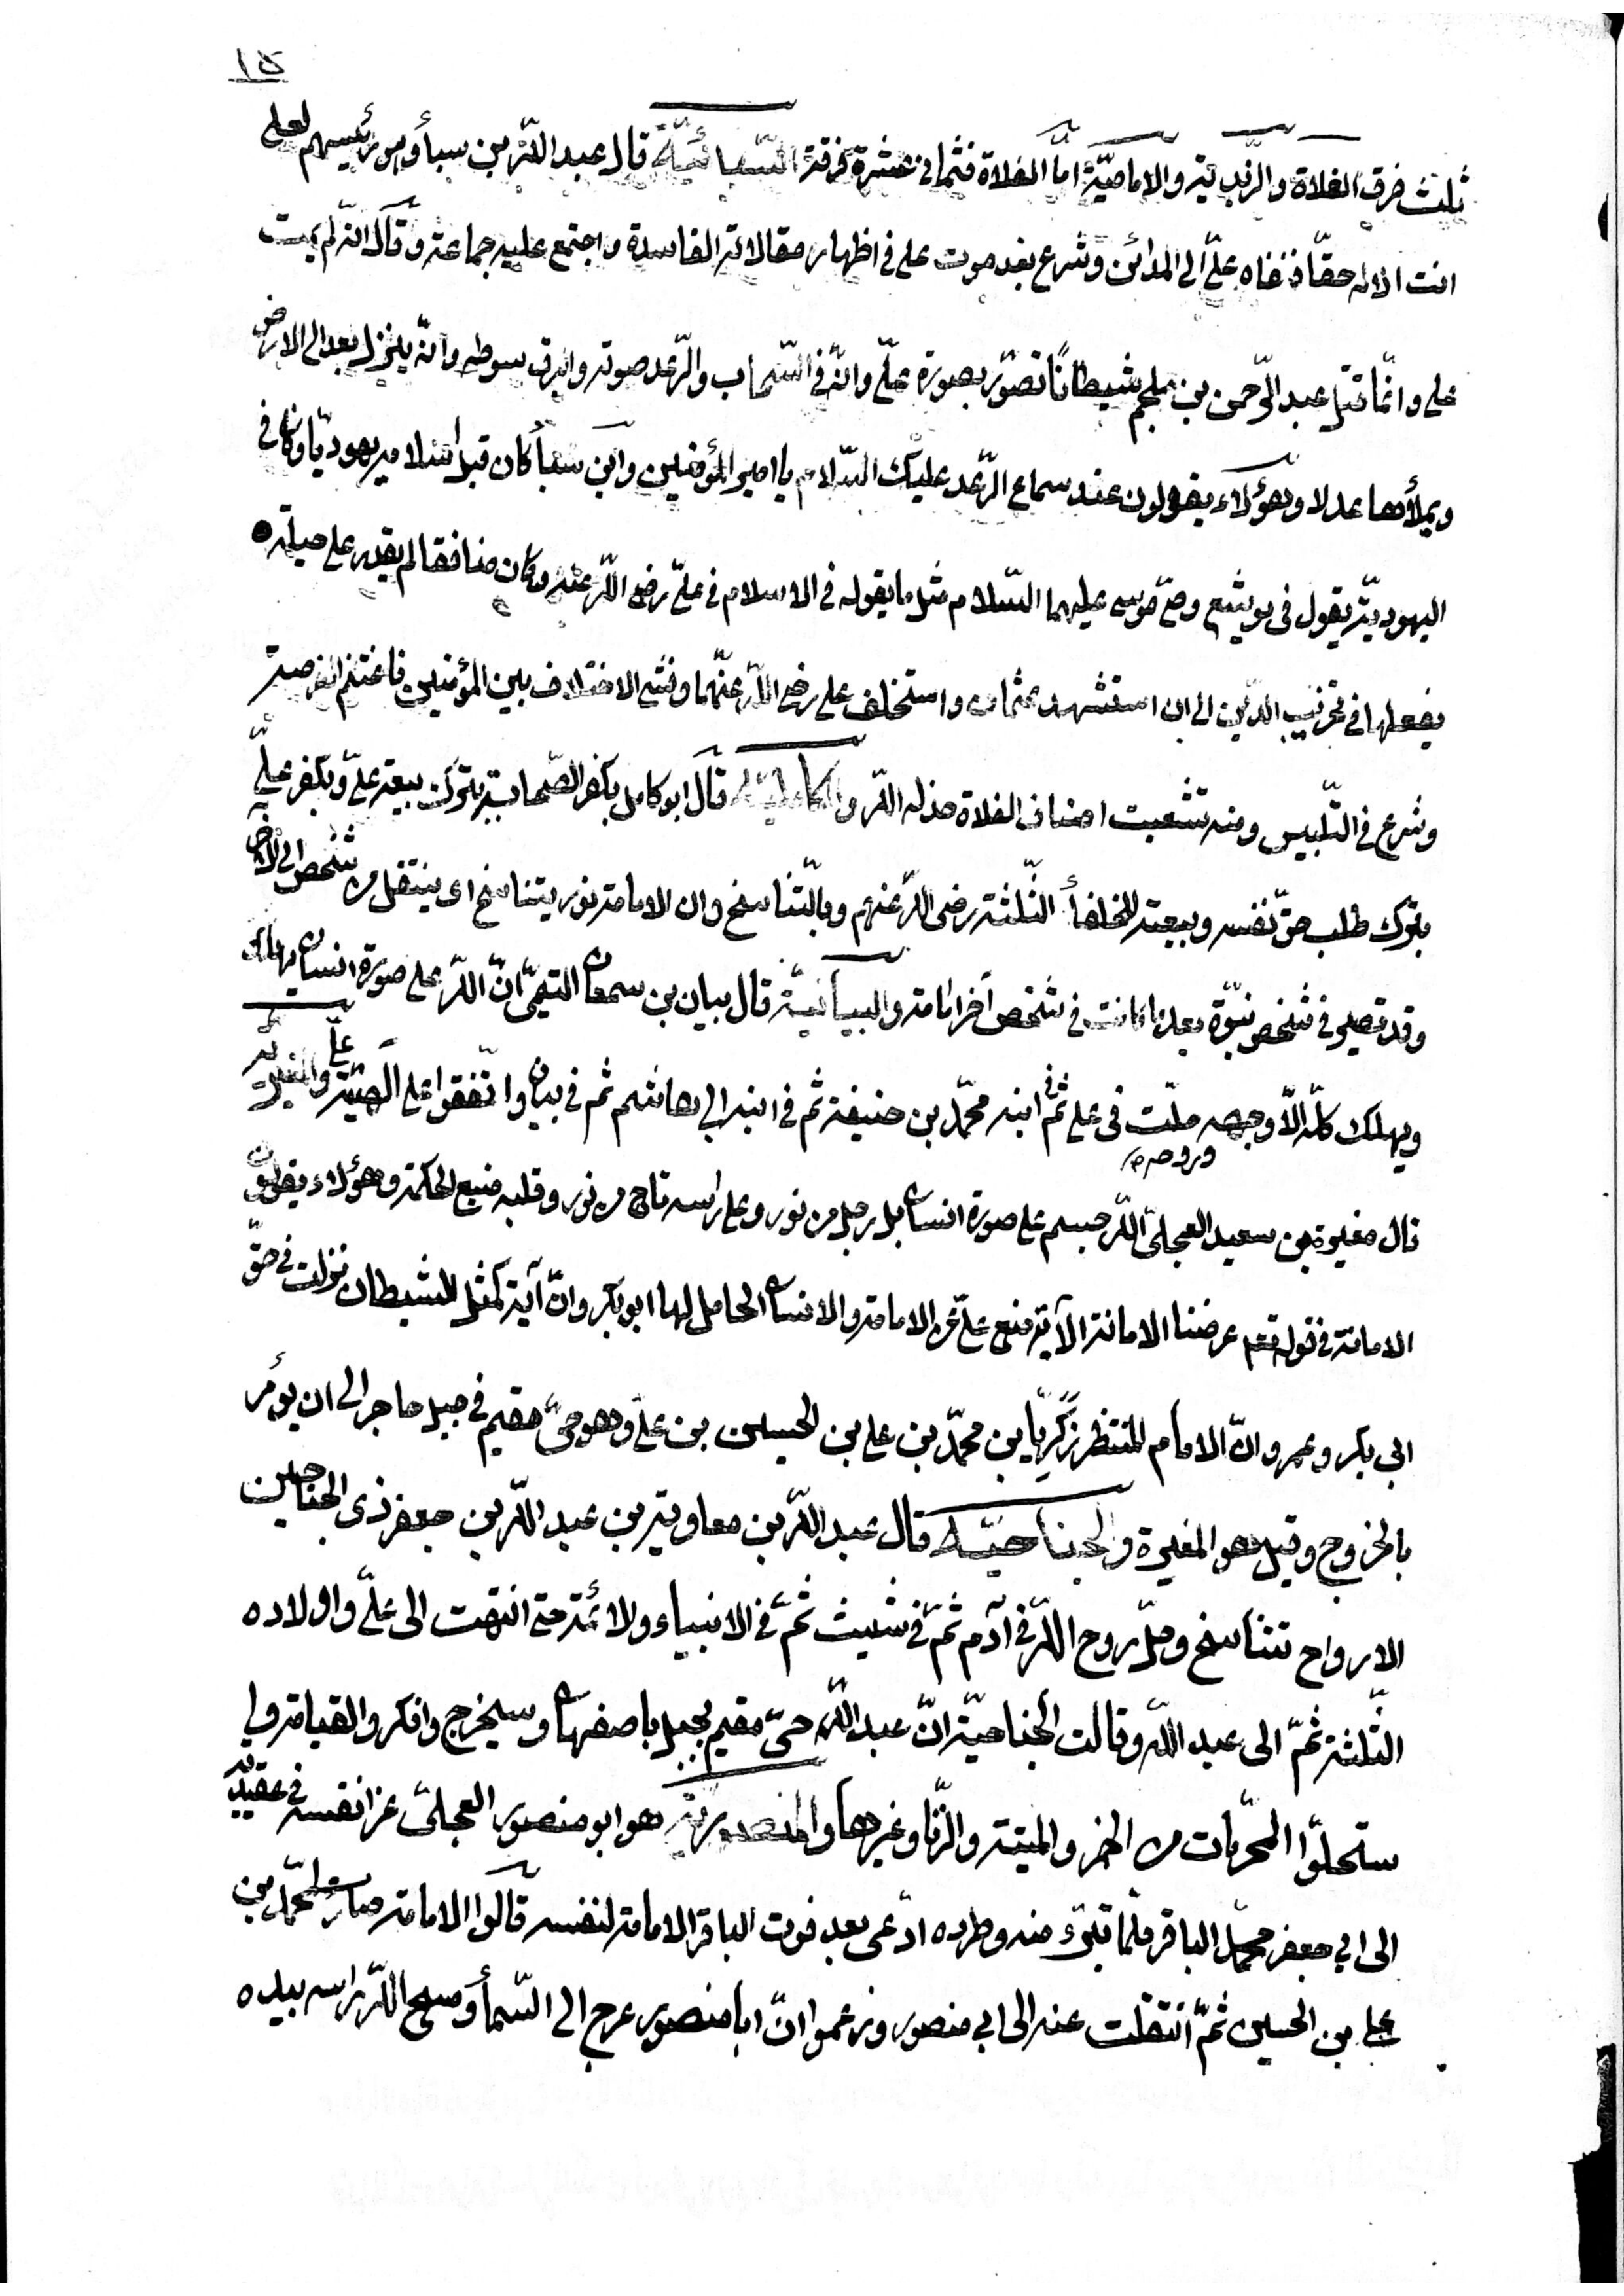 ١٥
ثلث فرق الغلاة والزيدية والامامية امّا الغلاة فثمانى عشرة فرقة السبائيّة قال عبد اللّه بن سبأ وهو رئيسهم لعلى
انت الاله حقّا فنفاه علىّ الى المدائن وشرع بعد موت على فى اظهار مقالاته الفاسدة واجتمع عليه جماعة وقال انّه لم يمت
على وانّما قتل عبد الرّحمن بن ملجم شيطانًا تصوّر بصورة علىّ وانّه فى السّحاب والرّعد صوته والبرق سوطه وانّه ينزل بعد الى الارض
ويملأها عدلا وهؤلاء يقولون عند سماع الرّعد عليك السّلام يا امير المؤمنين وابن سبأ كان قبل اسلامه يهوديّا وكان فى
اليهوديّة يقول فى يوشع وصىّ موسى عليهما السّلام مثل ما يقوله فى الاسلام فى علىّ رضى اللّه عنه وكان منافقا لم يقدر على حيلة
يفعلها فى تخريب الدّين الى ان استشهد عثمان واستخلف على رضى اللّه عنهما وفشى الاختلاف بين المؤمنين فاغتنم الفرصة
وشرع فى التّلبيس ومنه تشعبت اصناف الغلاة خذله اللّه والكامليّة قال ابو كامل بكفر الصّحابة بترك بيعة علىّ وبكفر علىّ
بترك طلب حقّ نفسه وبيعته للخلفأ الثّلثة رضى اللّه عنهم وبالتّناسخ وان الامامة نور يتناسخ اى ينتقل من شخص الى الاخر
وقد تصير فى شخص نبوّة بعد ما كانت فى شخص آخر امامة والبيانيّة قال بيان بن سمعان التيمىّ انّ اللّه على صورة انسان
ويهلك كلّه الّا وجهه وروحه حلّت فى على ثم فى ابنه محمّد بن حنيفة ثم فى ابنه ابى هاشم ثم فى بيان واتّفقوا على الهيّة علىّ والمغيرية
قال مغيرة بن سعيد العجلىّ اللّه جسم على صورة انسان بل رجل من نور وعلى راسه تاج من نور وقلبه منبع الحكمة وهؤلاء يقولون
الامانة فى قوله تعم عرضنا الامانة الآية منع علىّ عن الامامة والانسان الحامل لها ابو بكر وانّ آية كمثل الشيطان نزلت فى حقّ
ابى بكر وعمر وانّ الامام المنتظر زكريّا بن محمّد بن على بن الحسين بن علىّ وهو حىّ مقيم فى جبل حاجر الى ان يؤمر
بالخروج وقيل هو المغيرة والجناحيّة قال عبد اللّه بن معاوية بن عبد اللّه بن جعفر ذى الجناحين
الارواح تتناسخ وحلّ روح اللّه فى آدم ثمّ فى شيث ثمّ فى الانبياء والائمّة حتى انتهت الى علىّ واولاده
الثّلثة ثمّ الى عبد اللّه وقالت الجناحيّة انّ عبد اللّه حىّ مقيم بجبل باصفهان وسيخرج وانكروا القيامة و
ستحلّوا المحرّمات من الخمر والميتة والزّنا وغيرها والمنصوريّة هو ابو منصور العجلىّ عزا نفسه فى عقيدته
الى ابى جعفر محمّد الباقر فلمّا تبرّئ منه وطرده ادّعى بعد فوت الباقر الامامة لنفسه قالوا الامامة صارت لمحمّد بن
على بن الحسين ثمّ انتقلت عنه الى ابى منصور وزعموا انّ ابا منصور عرج الى السّمأ ومسح اللّه راسه بيده